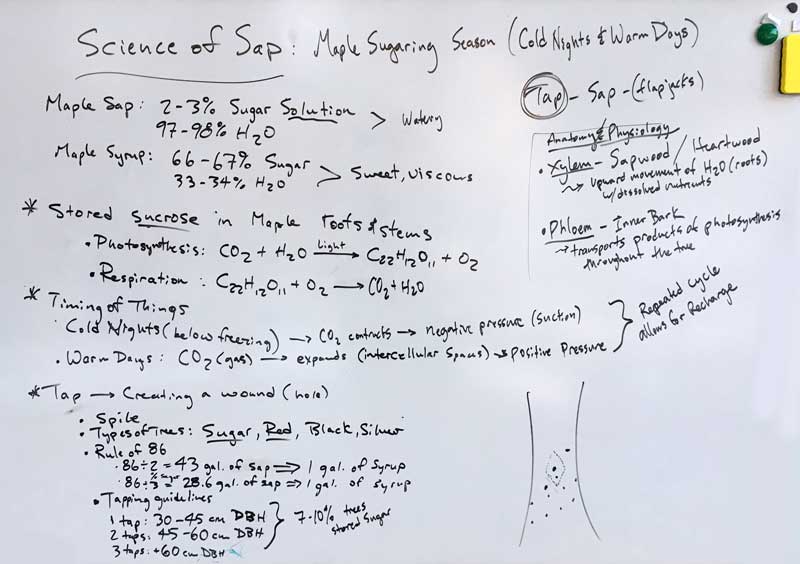 Science of Sap: Maple Sugaring Season (Cold Nights & Warm Days)
Tap - Sap - (flapjacks)
Maple Sap: 2-3% Sugar Solution > Watery
97-98% H2O
Maple Syrup: 66-67% Sugar > Sweet, viscous
33-34% H2O
Anatomy & Physiology
• Xylem - Sapwood / Heartwood
→ Upward movement of H2O (roots)
w/dissolved nutrients
• Phloem - Inner Bark
→ transports products of photosynthesis
throughout the tree
* Stored sucrose in Maple roots & stems
• Photosynthesis: CO2 + H2O —Light→ C22H12O11 + O2
• Respiration: C22H12O11 + O2 → CO2 + H2O
* Timing of Things
Cold Nights (below freezing) → CO2 contracts → negative pressure (suction)
• Warm Days: CO2 (gas) → expands (intercellular spaces) → positive Pressure
} Repeated cycle
allows for Recharge
* Tap → Creating a wound (hole)
• Spile
• Types of Trees: Sugar, Red, Black, Silver
• Rule of 86
• 86÷2 = 43 gal. of sap ⇒ 1 gal. of syrup
% sugar
• 86÷3 = 28.6 gal. of sap ⇒ 1 gal. of syrup
• Tapping guidelines
1 tap: 30-45 cm DBH
2 taps: 45-60 cm DBH
3 taps: +60 cm DBH
} 7-10% trees
stored sugar